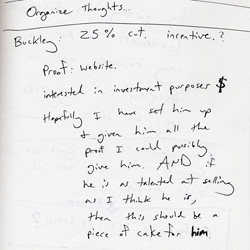 Organize Thoughts...
Buckley: 25% cut. incentive.?
Proof: website.
interested in investment purposes $
Hopefully I have set him up
& given him all the
proof I could possibly
give him. AND if
he is as talented at selling
as I think he is,
then this should be a
piece of cake for him.